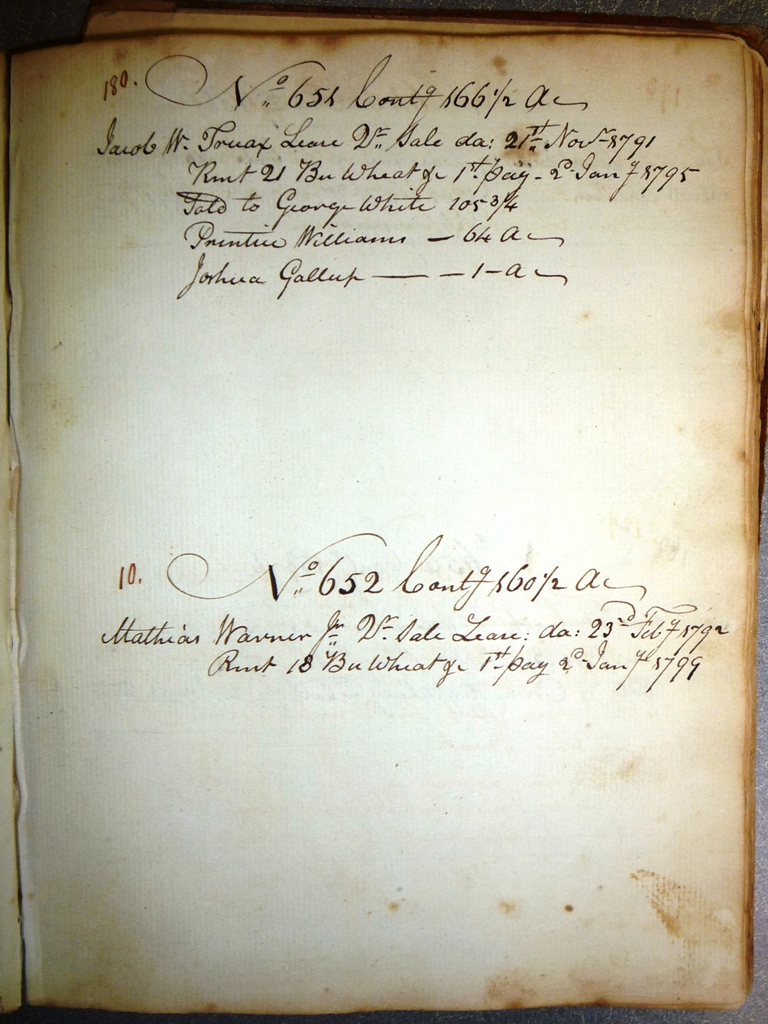 180. No 651 Contg 166 1/2 Ac
Jacob W. Truax Lease Dr. Sale da: 21st Novr 1791
Rent 21 Bu Wheat &c 1st pay - 2d Jany 1795
Sold to George White 105 3/4
Prentice Williams — 64 Ac
Joshua Gallup — — 1 - ac
10. No 652 Contg 160 1/2 Ac
Mathias Warner Jnr Dr. Sale Lease: da: 23rd Feby 1792
Rent 18 Bu Wheat &c 1st pay 2d Jany 1799